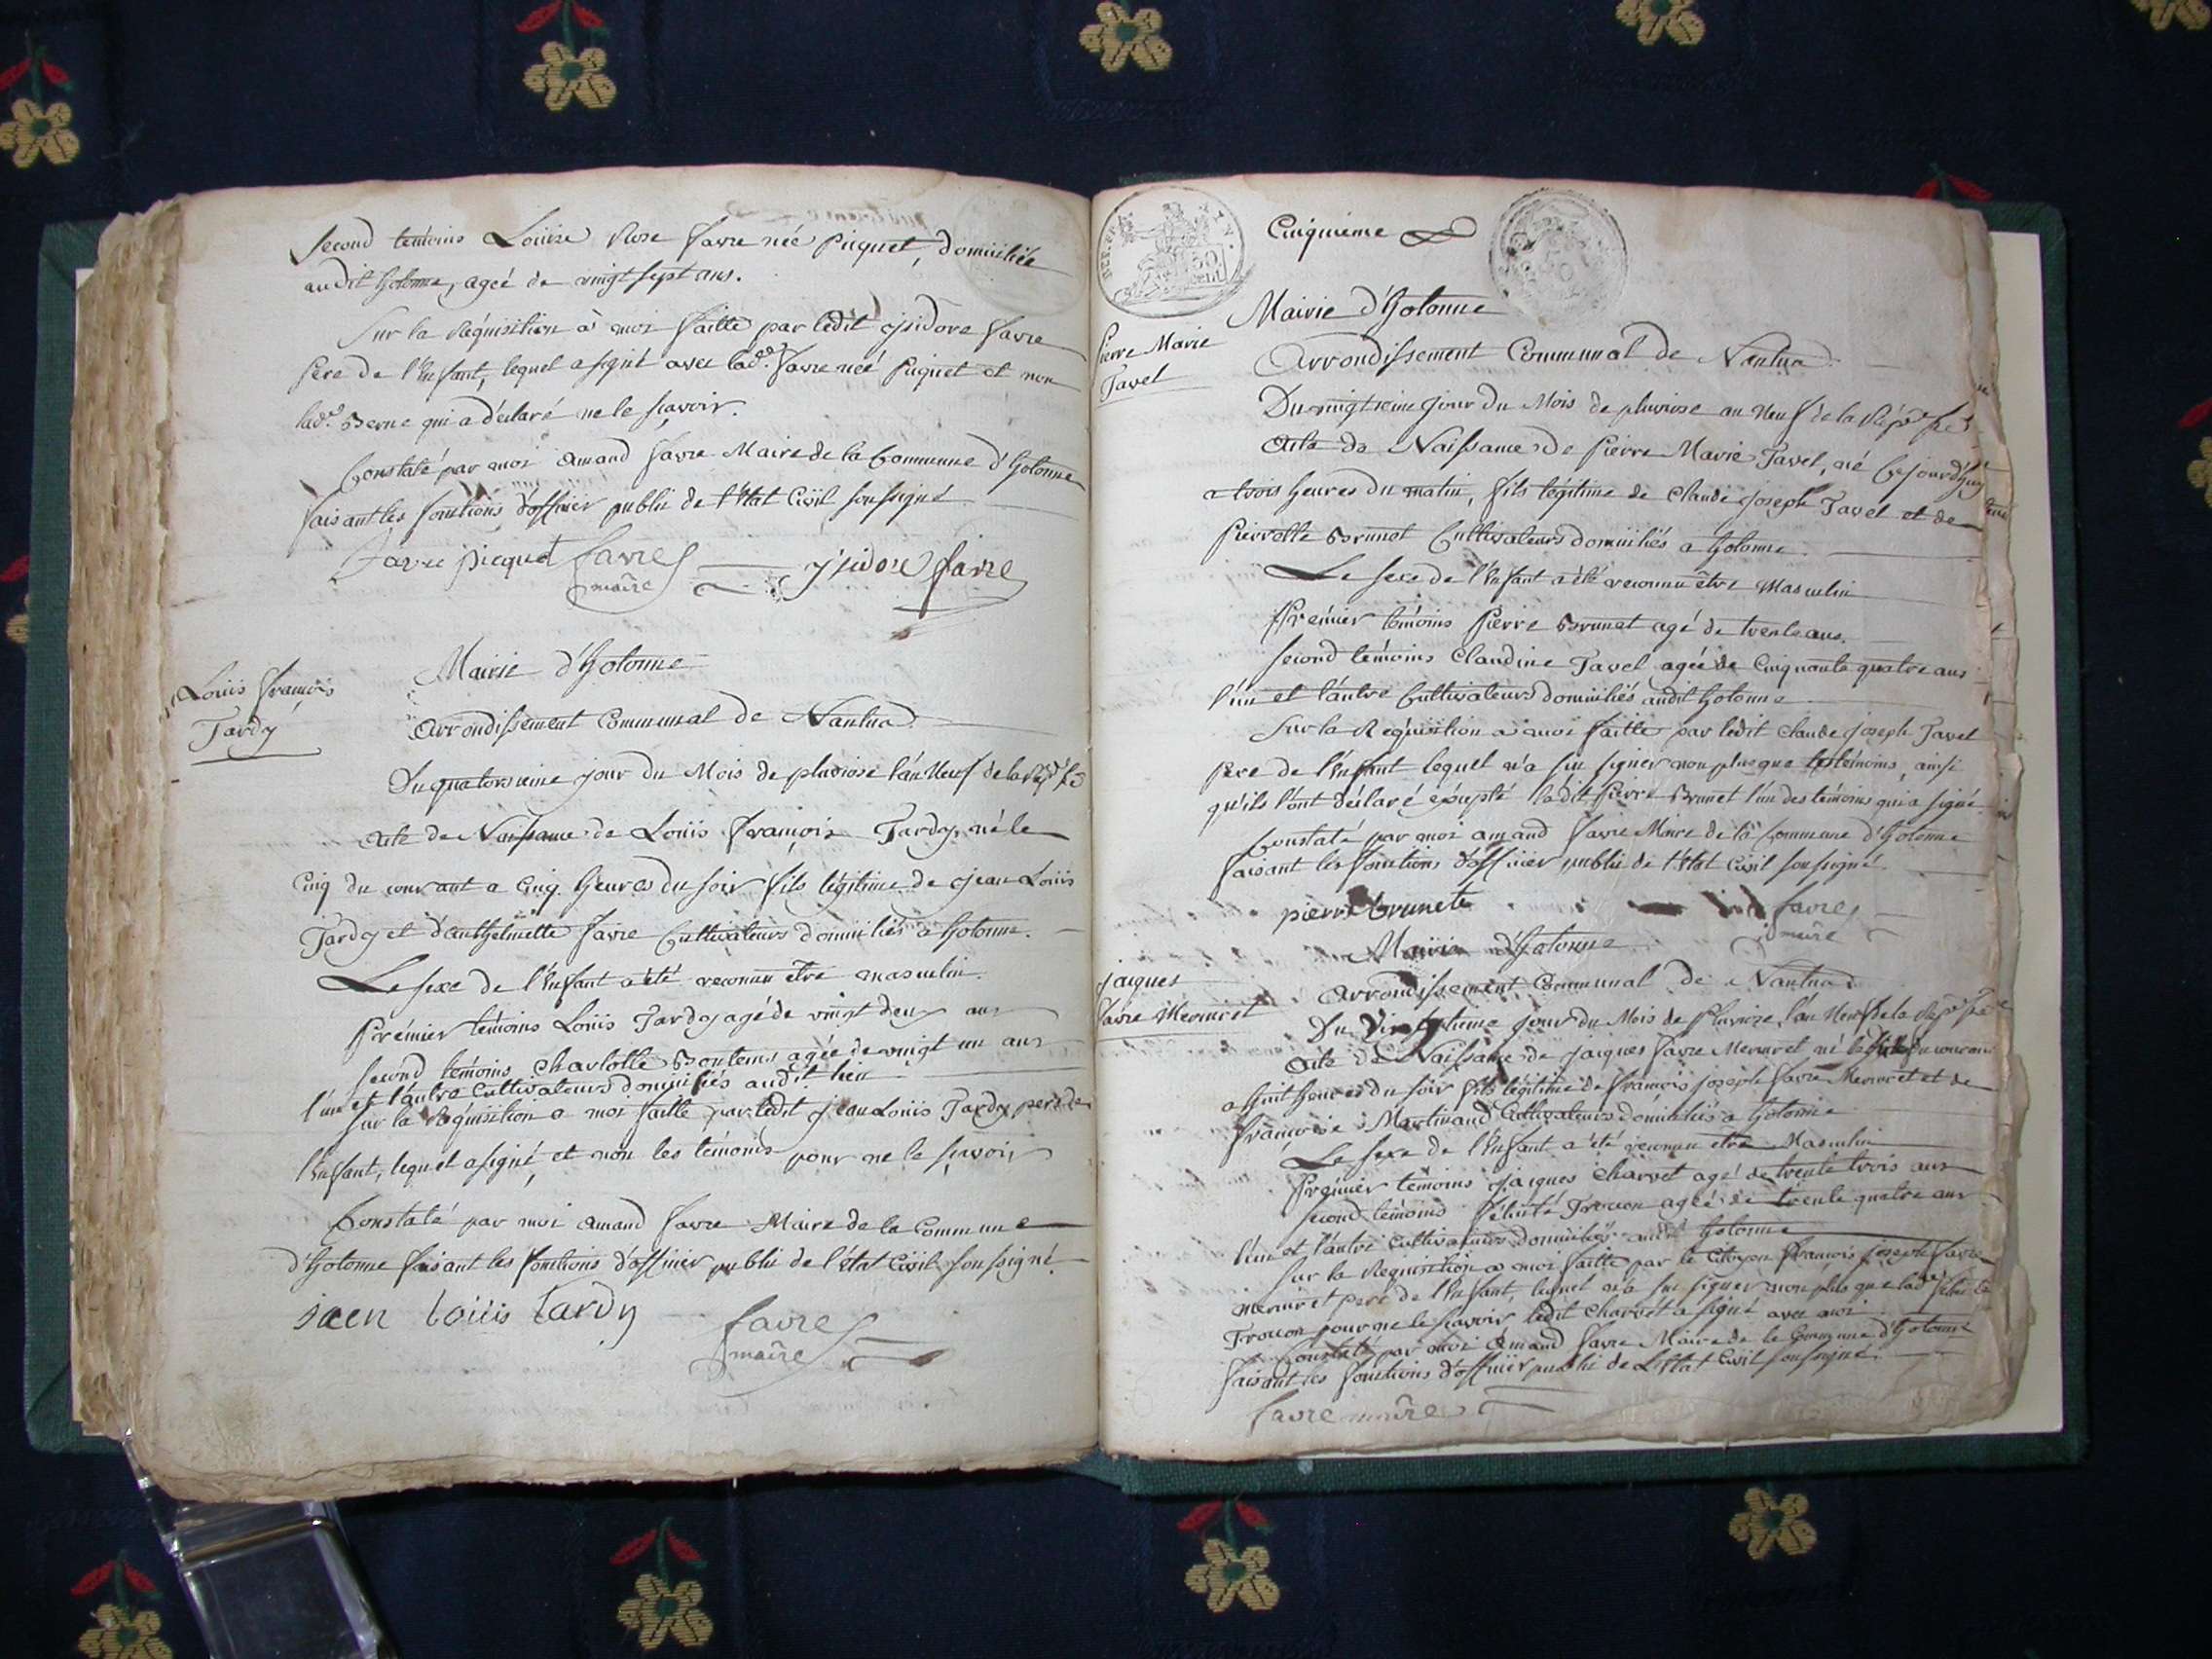 second temoins Loüise Rose favre née Picquet, domiciliée
audit hotonne, agée de vingt sept ans.
Sur la Réquisition à moi faitte par ledit isidore favre
père de l'Enfant, lequel a signé avec lad.e favre née Piquet et non
lad.e Berne qui a déclaré ne le sçavoir.
Constaté par moi Amand favre Maire de la Commune d'hotonne
faisant les fonctions d'officier public de l'Etat Civil soussigné
favre picquet favre ysidore favre
maire
Loüis françois
Tardy
Mairie d'hotonne
Arrondissement Communal de Nantua
Du quatorzieme jour du Mois de pluviose l'an Neuf de la
Acte de Naissance de Loüis françois Tardy, né le
Cinq du courant a Cinq heures du soir fils légitime de Jean Loüis
Tardy et d'anthelmette favre Cultivateurs domiciliés a hotonne.
Le sexe de l'Enfant a été reconnu être masculin.
Prémier témoins Loüis Tardy agé de vingt deux ans
second témoins Charlotte Bontems agée de vingt un ans
l'un et l'autre Cultivateurs domiciliés audit lieu
sur la Réquisition a moi faitte par ledit Jean Loüis Tardy pere de
l'Enfant, lequel a signé, et non les témoins pour ne le sçavoir
Constaté par moi Amand favre Maire de la Commune
d'hotonne faisant les fonctions d'officier public de l'Etat Civil soussigné.
jaen loiiis tardy
favre
maire
Cinquieme
REP. FRA.
50
CENT.
Pierre Marie
Tavel
Mairie d'hotonne
Arrondissement Communal de Nantua
Du vingtieme Jour du Mois de pluviose an Neuf de la
Acte de Naissance de Pierre Marie Tavel, né Cejourd'huy
a trois heures du matin, fils légitime de Claude Joseph Tavel et de
Pierrette Brunet Cultivateurs domiciliés a hotonne.
Le sexe de l'Enfant a été reconnu être Masculin
Prémier témoins Pierre Brunet agé de trente ans.
second témoins Claudine Tavel agée de Cinquante quatre ans
l'un et l'autre Cultivateurs domiciliés audit hotonne
Sur la Réquisition a moi faitte par ledit Claude Joseph Tavel
pere de l'Enfant lequel n'a su signer non plus que les témoins, ainsi
qu'ils l'ont déclaré éxcepté ledit Pierre Brunet l'un des témoins qui a signé
Constaté par moi amand favre Maire de la Commune d'hotonne
faisant les fonctions d'officier public de l'Etat Civil soussigné.
pierre brunet favre
maire
Jaiques
favre Mermret
Mairie d'hotonne
Arrondissement Communal de Nantua
Du jour du Mois de Pluviose, l'an Neuf de la
Acte de Naissance de Jaiques favre Mermret né le du courant
a huit heures du soir fils légitime de françois joseph favre Mermret et de
françoise Martinand Cultivateurs domiciliés a hotonne
Le sexe de l'Enfant a été reconnu etre Masculin
Prémier témoins Jaiques Charvet agé de trente trois ans
second témoins félicité Trocon agée de trente quatre ans
l'un et l'autre Cultivateurs domiciliés audit hotonne
Sur la Requisition a moi faitte par le Citoyen françois joseph favre
mermret pere de l'Enfant, lequel n'a su signer non plus que lad.e
Trocon pour ne le sçavoir ledit Charvet a signé avec moi
Constaté par moi Amand favre Maire de la Commune d'hotonne
faisant les fonctions d'officier public de L'Etat Civil soussigné.
favre maire